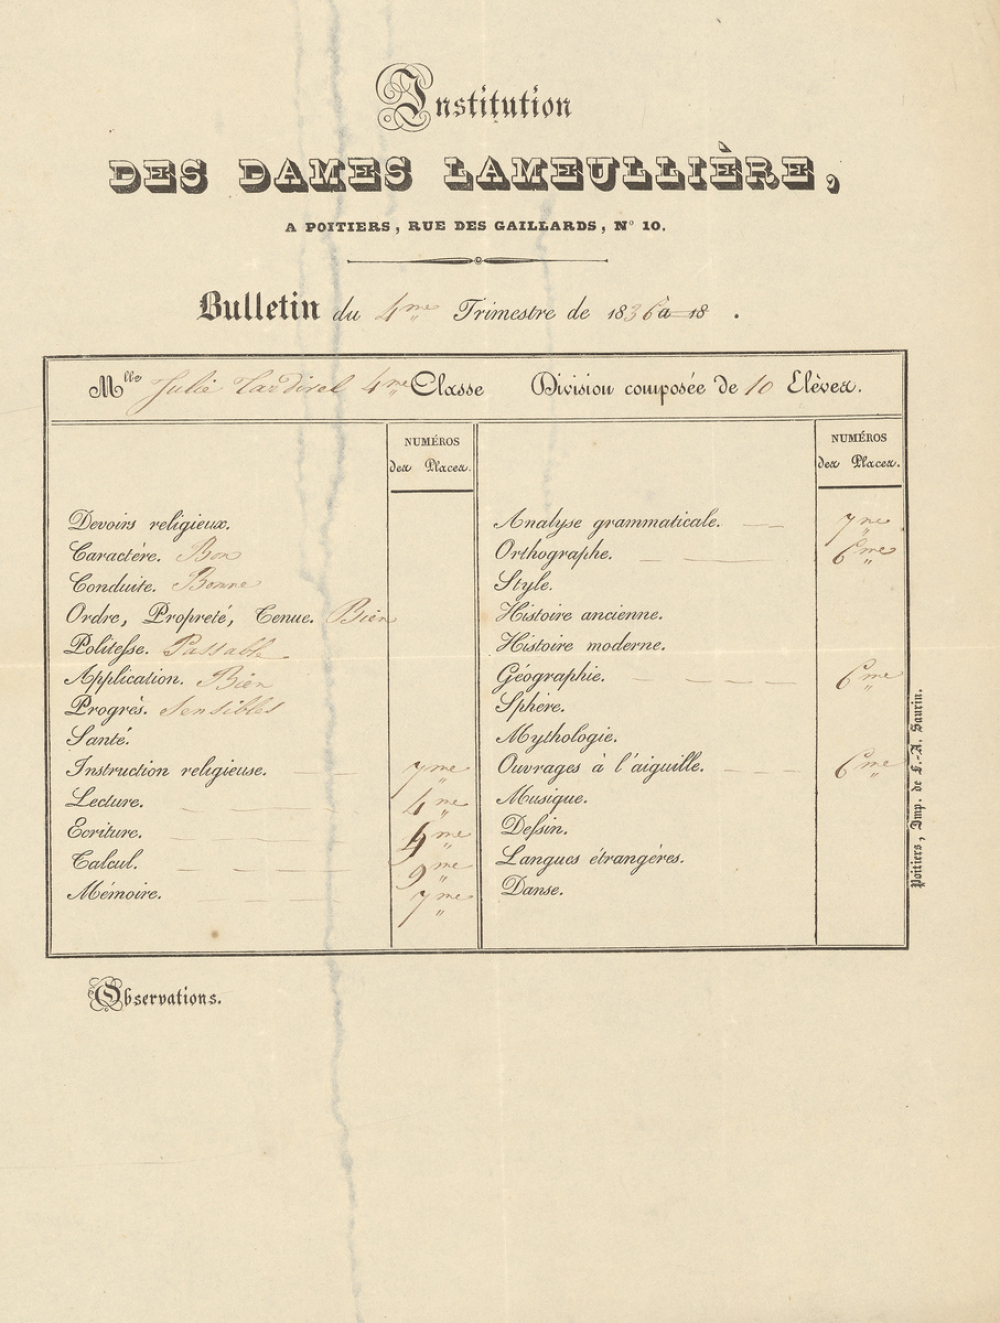 Institution
DES DAMES LAMEULLIÈRE,
A POITIERS, RUE DES GAILLARDS, N° 10.
Bulletin du 4me Trimestre de 1836 à 18 .
Mlle Julie Tardivel 4me Classe Division composée de 10 Elèves.
NUMÉROS
des Places.
Devoirs religieux.
Caractère. Bon
Conduite. Bonne
Ordre, Propreté, Tenue. Bien
Politesse. Passable
Application. Bien
Progrès. Sensibles
Santé.
Instruction religieuse. 7me
Lecture. 4me
Ecriture.
Calcul. 9me
Mémoire. 7me
NUMÉROS
des Places.
Analyse grammaticale. 7me
Orthographe. 6me
Style.
Histoire ancienne.
Histoire moderne.
Géographie. 6me
Sphère.
Mythologie.
Ouvrages à l'aiguille. 6me
Musique.
Dessin.
Langues étrangères.
Danse.
Poitiers, Imp. de F.-A. Saurin.
Observations.